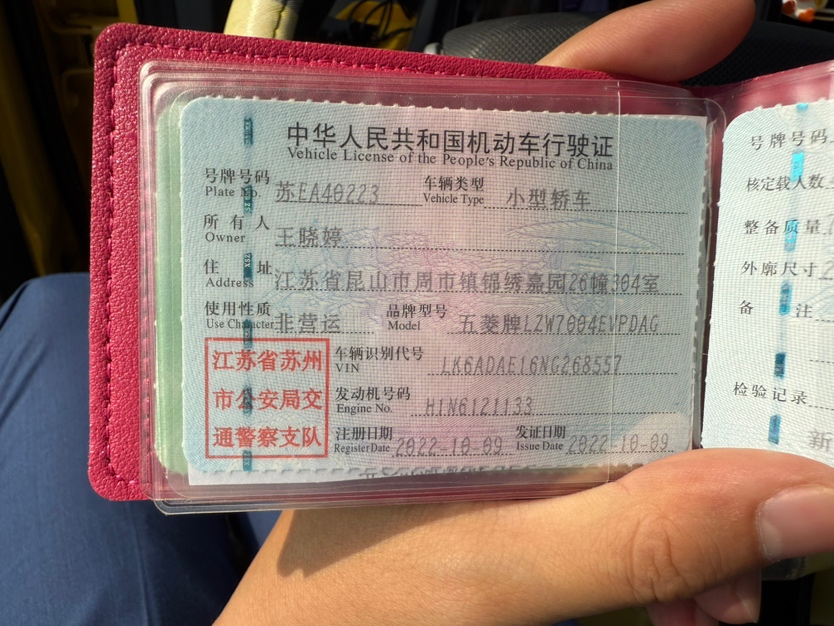 中华人民共和国机动车行驶证
Vehicle License of the People's Republic of China
号牌号码 苏EA40223 车辆类型 小型轿车
Plate No. Vehicle Type
所有人 王晓婷
Owner
住址 江苏省昆山市周市镇锦绣嘉园26幢304室
Address
使用性质 非营运 品牌型号 五菱牌LZW7004EVPDAG
Use Character Model
江苏省苏州
市公安局交
通警察支队
车辆识别代号 LK6ADAE16NG268557
VIN
发动机号码 H1N6121133
Engine No.
注册日期 2022-10-09 发证日期 2022-10-09
Register Date Issue Date
号牌号码
核定载人数
整备质量
外廓尺寸
备注
检验记录
新